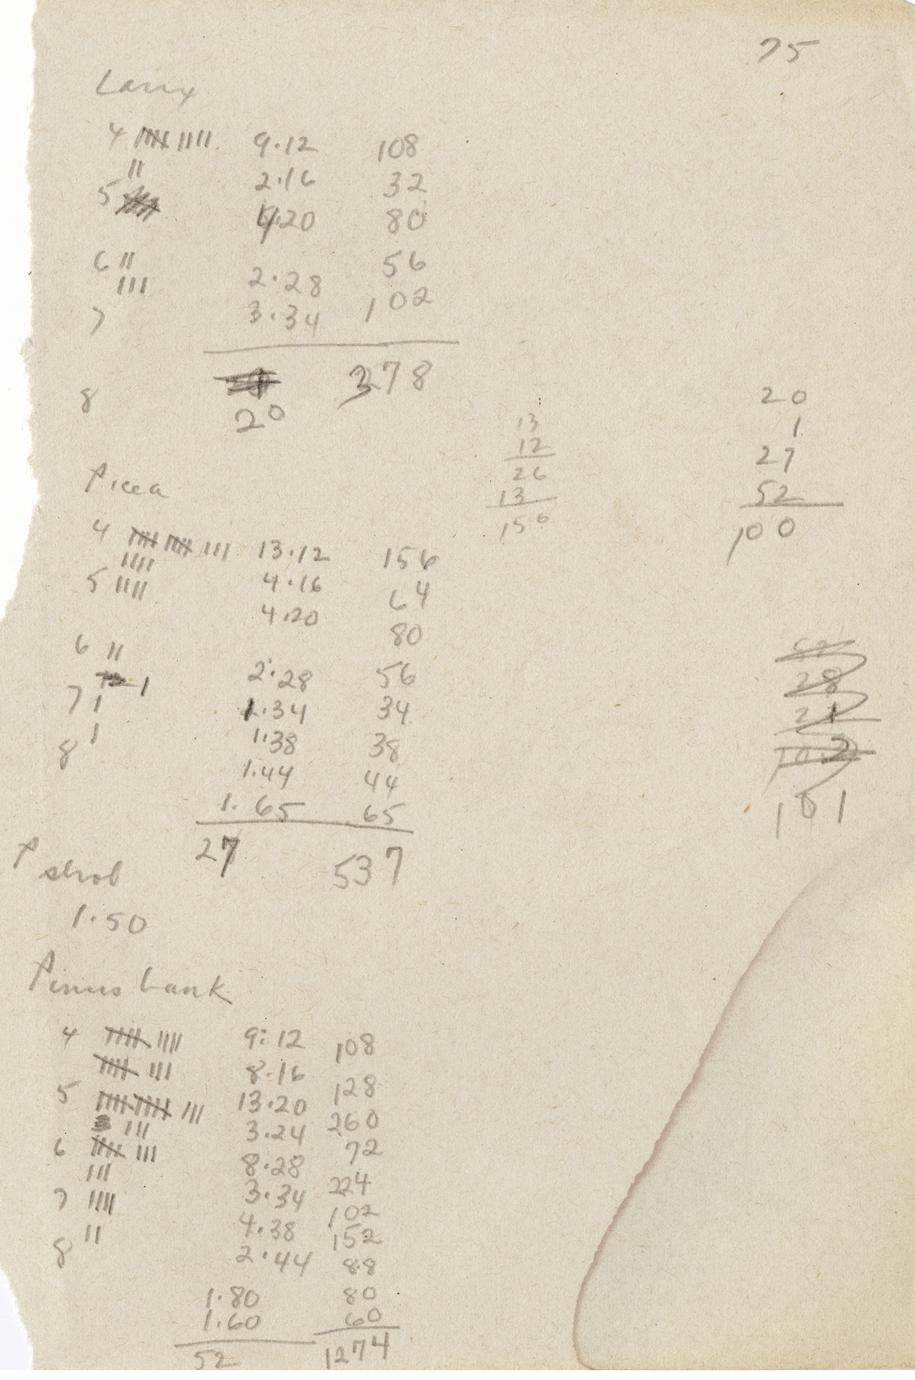 75
Larix
4 |||| |||| 9·12 108
|| 2·16 32
5 4·20 80
6 || 56
||| 2·28
7 3·34 102
378
8 20
20
1
27
52
100
13
12
26
13
156
Picea
4 |||| |||| ||| 13·12 156
|||| 4·16 64
5 |||| 4·20 80
6 || 2·28 56
1
7 | 1·34 34
| 1·38 38
8 1·44 44
1·65 65
27 537
28
21
101
P strob
1·50
Pinus bank
4 |||| |||| 9·12 108
|||| ||| 8·16 128
5 |||| |||| ||| 13·20 260
||| 3·24 72
6 |||| ||| 8·28 224
||| 3·34 102
7 |||| 4·38 152
|| 2·44 88
8
1·80 80
1·60 60
52 1274